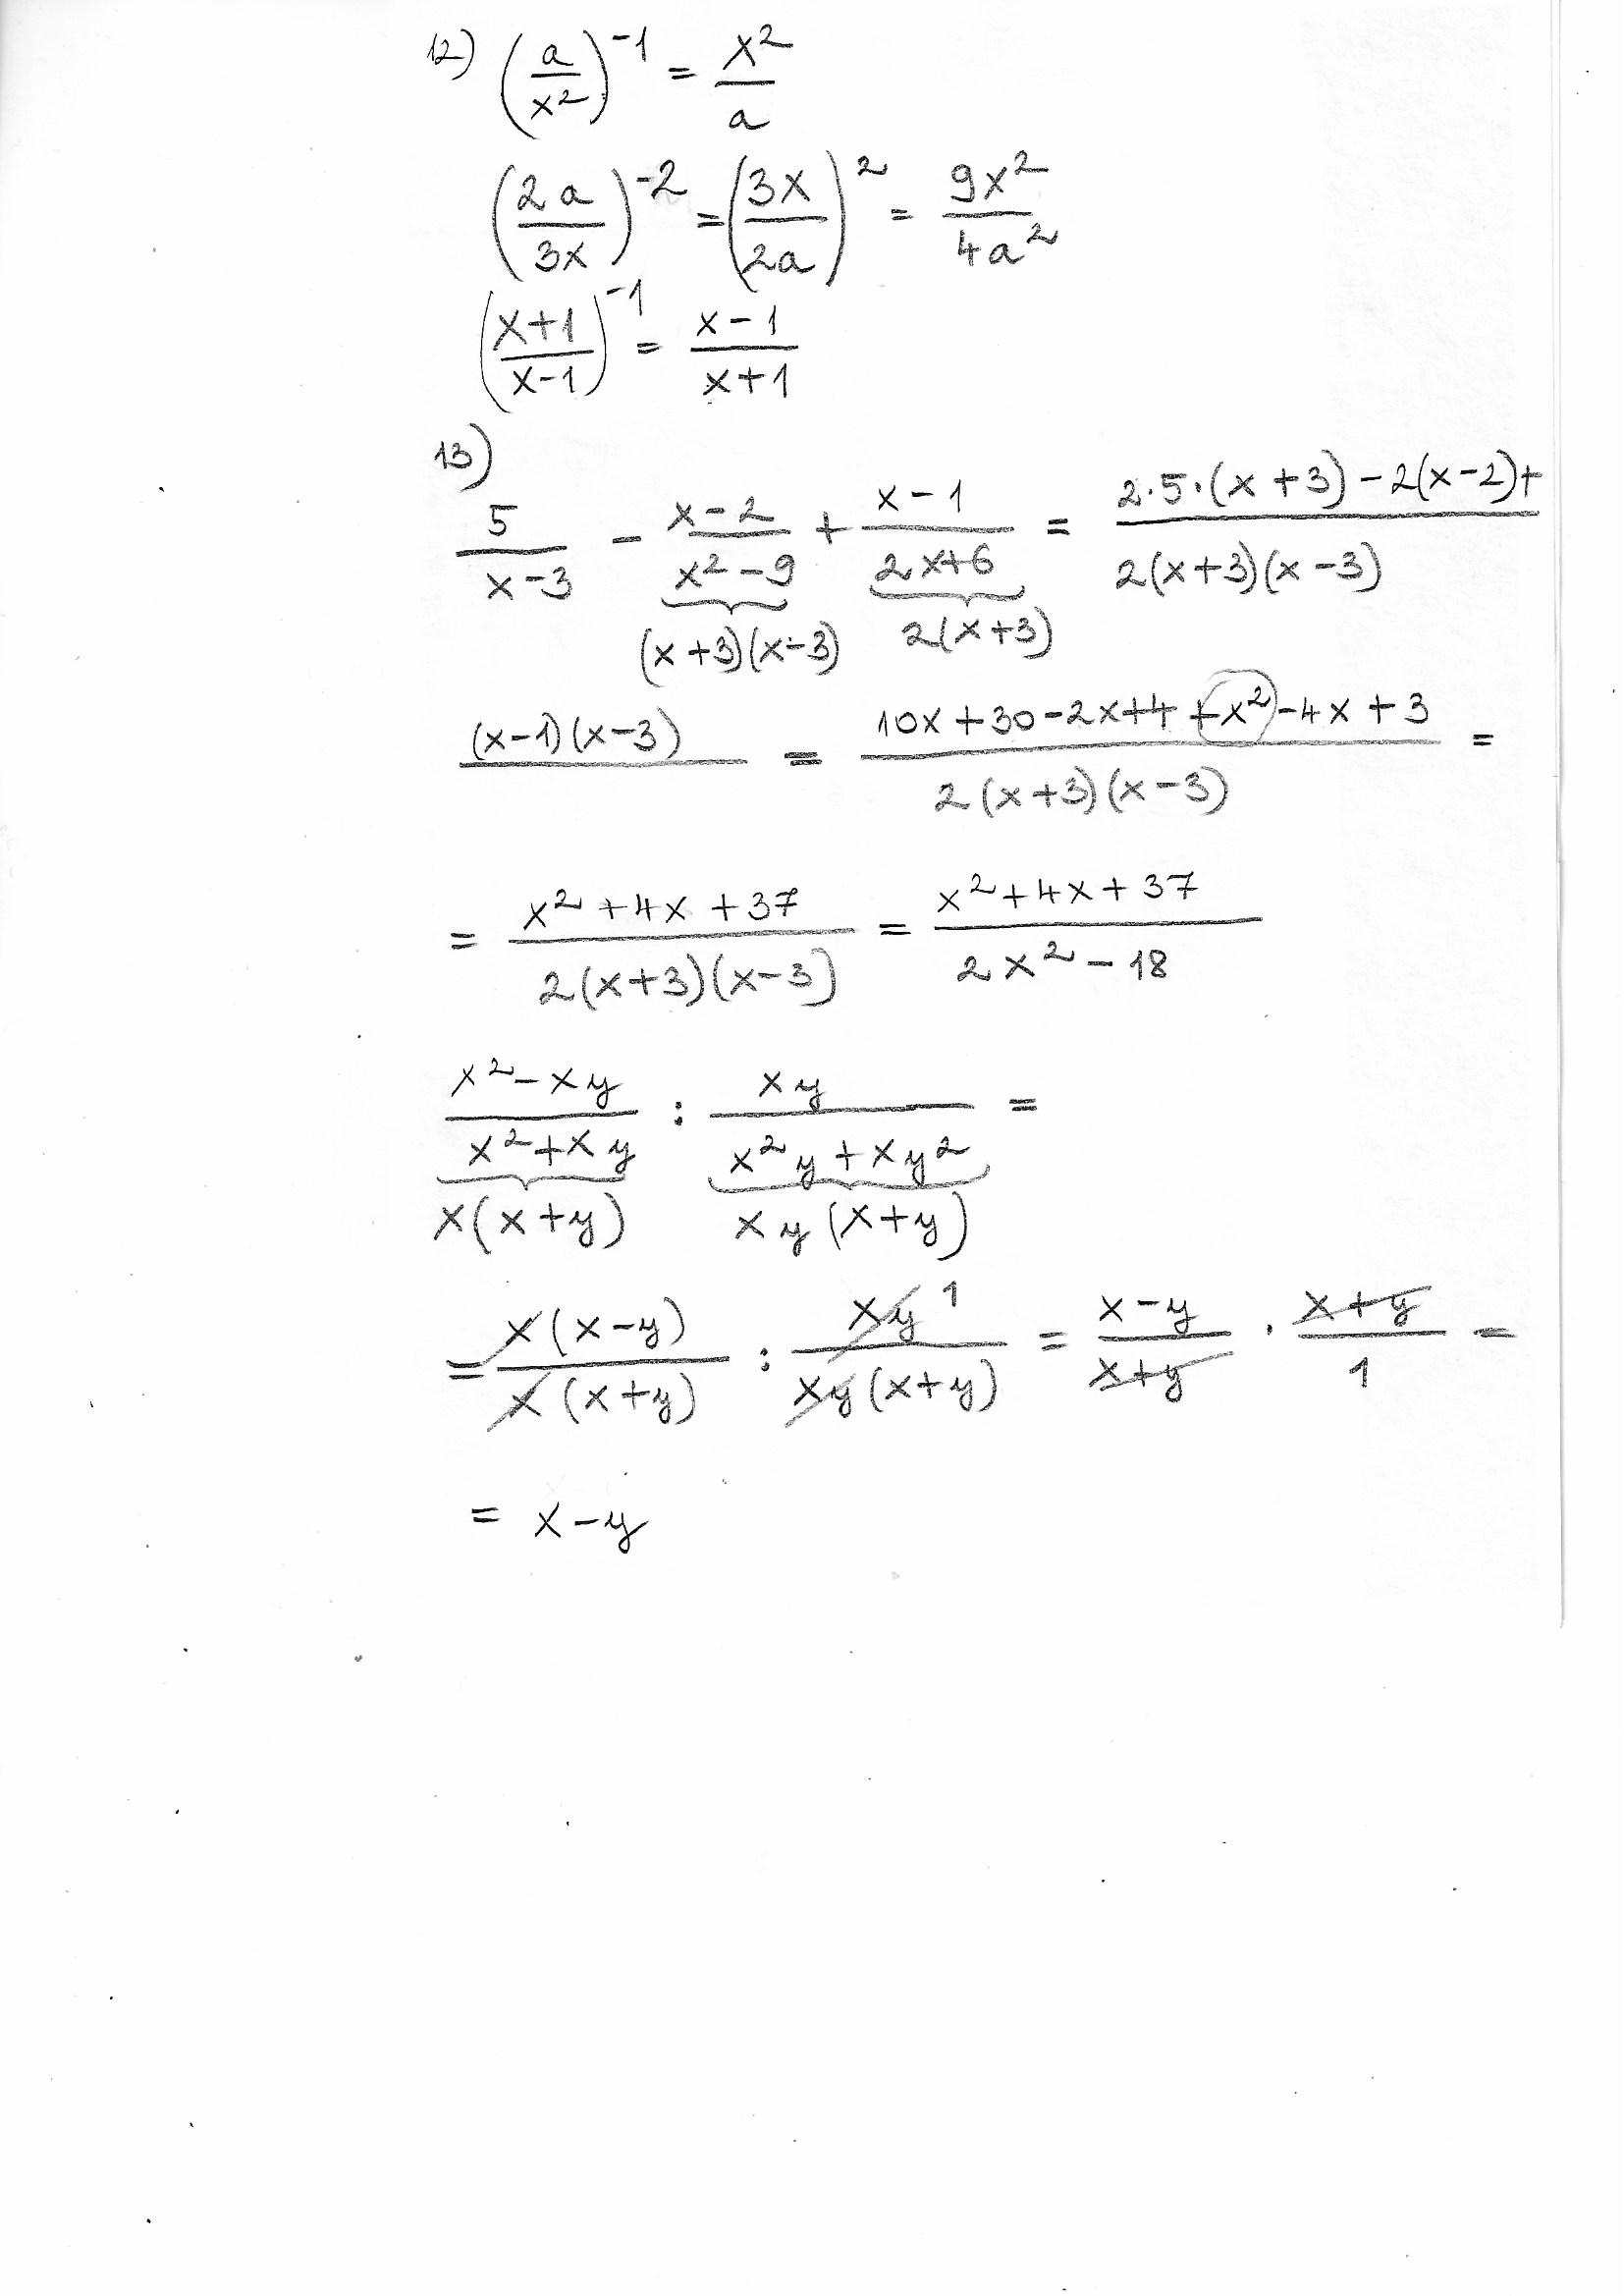 12) (a/x²)⁻¹ = x²/a
(2a/3x)⁻² = (3x/2a)² = 9x²/4a²
(x+1/x-1)⁻¹ = x-1/x+1
13)
5/(x-3) - (x-2)/(x²-9) + (x-1)/(2x+6) = 2·5·(x+3)-2(x-2)+ / 2(x+3)(x-3)
(x+3)(x-3) 2(x+3)
(x-1)(x-3) = 10x+30-2x+4+x²-4x+3 / 2(x+3)(x-3) =
= x²+4x+37 / 2(x+3)(x-3) = x²+4x+37 / 2x²-18
x²-xy / x²+xy : xy / x²y+xy² =
x(x+y) xy(x+y)
= x(x-y) / x(x+y) : xy 1 / xy(x+y) = x-y / x+y · x+y / 1 =
= x-y